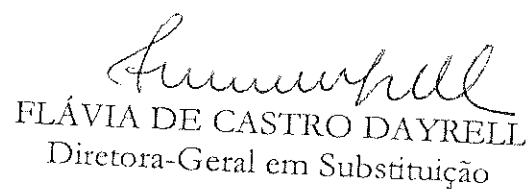 FLÁVIA DE CASTRO DAYRELL
Diretora-Geral em Substituição